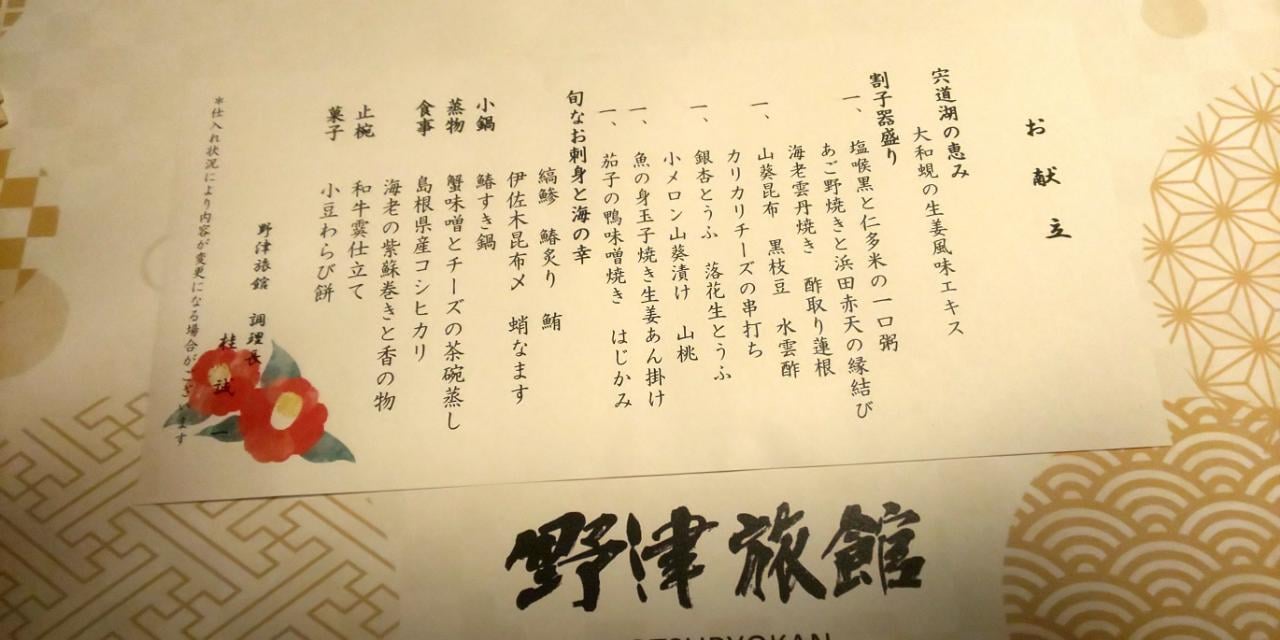 お献立
宍道湖の恵み
大和蜆の生姜風味エキス
割子器盛り
一、塩喉黒と仁多米の一口粥
あご野焼きと浜田赤天の縁結び
海老雲丹焼き 酢取り蓮根
一、山葵昆布 黒枝豆 水雲酢
カリカリチーズの串打ち
一、銀杏とうふ 落花生とうふ
小メロン山葵漬け 山桃
一、魚の身玉子焼き生姜あん掛け
一、茄子の鴨味噌焼き はじかみ
旬なお刺身と海の幸
縞鯵 鰆炙り 鮪
伊佐木昆布〆 蛸なます
小鍋 鰆すき鍋
蒸物 蟹味噌とチーズの茶碗蒸し
食事 島根県産コシヒカリ
海老の紫蘇巻きと香の物
止椀 和牛霙仕立て
菓子 小豆わらび餅
野津旅館 調理長
桂 誠一
*仕入れ状況により内容が変更になる場合がございます
野津旅館